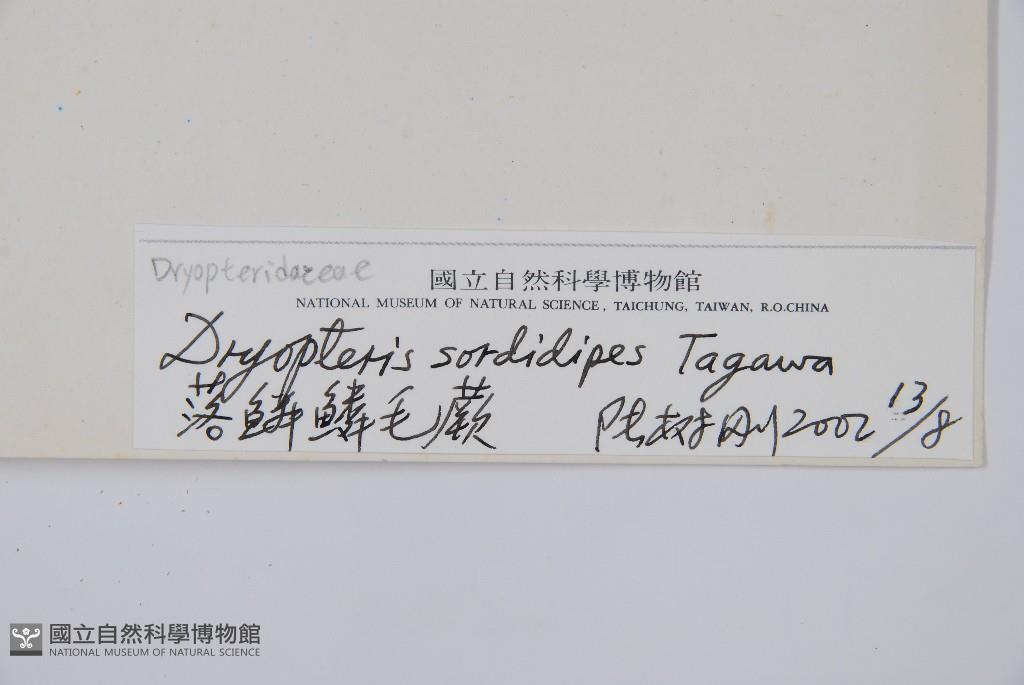 Dryopteridaceae
國立自然科學博物館
NATIONAL MUSEUM OF NATURAL SCIENCE, TAICHUNG, TAIWAN, R.O.CHINA
Dryopteris sordidipes Tagawa
落鱗鱗毛蕨 陆树刚 2002 13/8
國立自然科學博物館
NATIONAL MUSEUM OF NATURAL SCIENCE